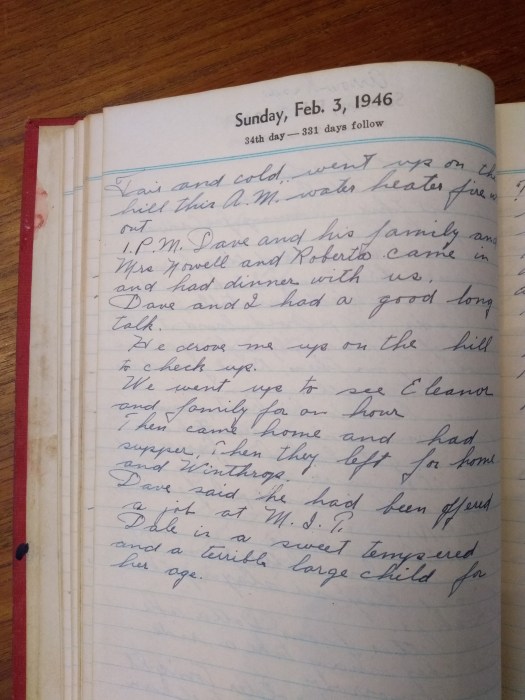 Sunday, Feb. 3, 1946
34th day—331 days follow
Fair and cold. went up on the
hill this A.M. water heater fire
out
1. P.M. Dave and his family and
Mrs Nowell and Roberta came in
and had dinner with us.
Dave and I had a good long
talk.
He drove me up on the hill
to check up.
We went up to see Eleanor
and family for an hour
Then came home and had
supper, Then they left for home
and Winthrop.
Dave said he had been offered
a job at M.I.T.
Dale is a sweet tempered
and a terrible large child for
her age.